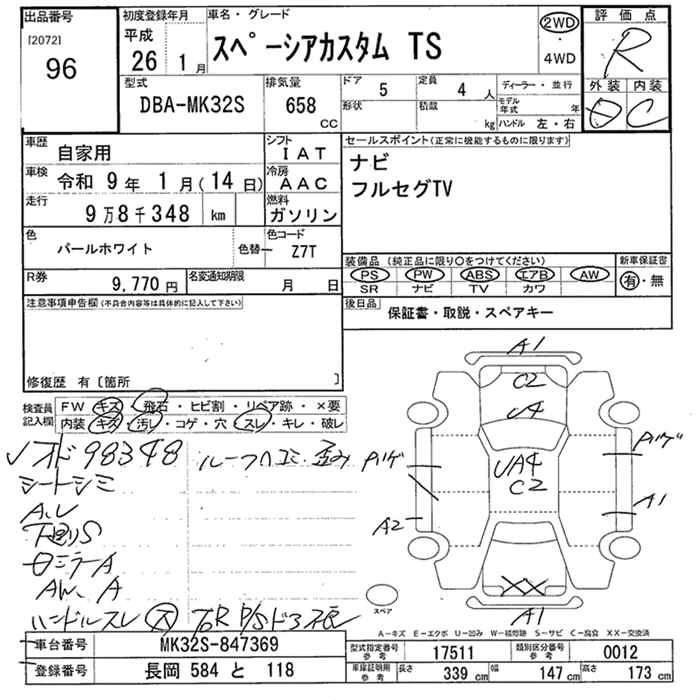 出品番号
[2072]
96
初度登録年月
平成
26 1月
車名・グレード
スペーシアカスタム TS
2WD
・
4WD
評価点
R
外装 内装
C
型式
DBA-MK32S
排気量
658 CC
ドア 5
形状
定員 4 人
積載 kg
ディーラー・並行
モデル年式 年
ハンドル 左・右
車歴
自家用
シフト
IAT
車検
令和 9年 1月(14日)
冷房
AAC
走行
9万8千348 km
燃料
ガソリン
色
パールホワイト
色替
色コード
Z7T
R券
9,770円
名変通知期限
月 日
セールスポイント(正常に機能するものに限ります)
ナビ
フルセグTV
装備品 (純正品に限り〇をつけてください)
PS PW ABS エアB AW
SR ナビ TV カワ
新車保証書
有・無
後日品
保証書・取説・スペアキー
注意事項申告欄(不具合内容等は具体的に記入して下さい)
修復歴 有〔箇所 〕
検査員記入欄
FW キズ・飛石・ヒビ割・リペア跡・×要
内装 キズ・汚レ・コゲ・穴・スレ・キレ・破レ
98348
シートシミ
ハンドルスレ
A1
C2
U4
UA4
C2
A1
A2
XX
A1
スペア
A-キズ E-エクボ U-凹み W-補修跡 S-サビ C-腐食 XX-交換済
車台番号
MK32S-847369
登録番号
長岡 584 と 118
型式指定番号
参考
17511
類別区分番号
参考
0012
車庫証明用
参考
長さ 339 cm 幅 147 cm 高さ 173 cm